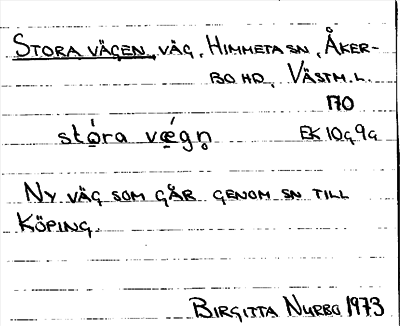 STORA VÄGEN, VÄG, HIMMETA SN, ÅKER-
BO HD, VÄSTM.L.
170
stó̱ra vǽ̱gn̥ EK 10g 9g
NY VÄG SOM GÅR GENOM SN TILL
KÖPING.
BIRGITTA NURBO 1973